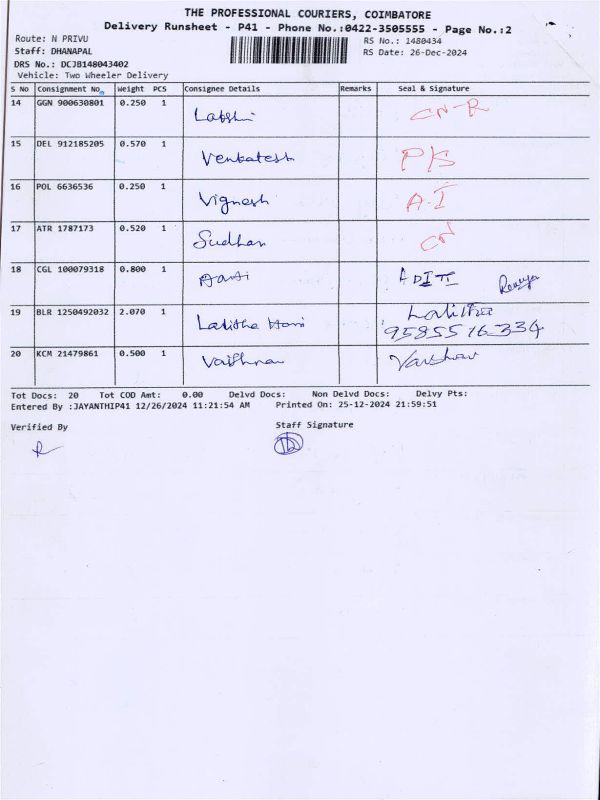 THE PROFESSIONAL COURIERS, COIMBATORE
Delivery Runsheet - P41 - Phone No.:0422-3505555 - Page No.:2
Route: N PRIVU
RS No.: 1480434
Staff: DHANAPAL
RS Date: 26-Dec-2024
DRS No.: DCJB148043402
Vehicle: Two Wheeler Delivery
S No Consignment No Weight PCS Consignee Details Remarks Seal & Signature
14 GGN 900630801 0.250 1 CN-R
15 DEL 912185205 0.570 1 Venkatesh
16 POL 6636536 0.250 1 Vignesh A.I
17 ATR 1787173 0.520 1 Sudhan CN
18 CGL 100079318 0.800 1 ADITI
19 BLR 1250492032 2.070 1 Lalitha Lalitha
9585516334
20 KCM 21479861 0.500 1
Tot Docs: 20 Tot COD Amt: 0.00 Delvd Docs: Non Delvd Docs: Delvy Pts:
Entered By :JAYANTHIP41 12/26/2024 11:21:54 AM Printed On: 25-12-2024 21:59:51
Verified By
Staff Signature